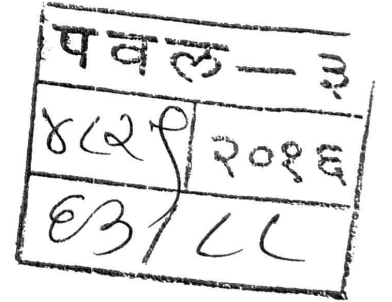 पवल — ३
४८२१ २०१६
६३/८८